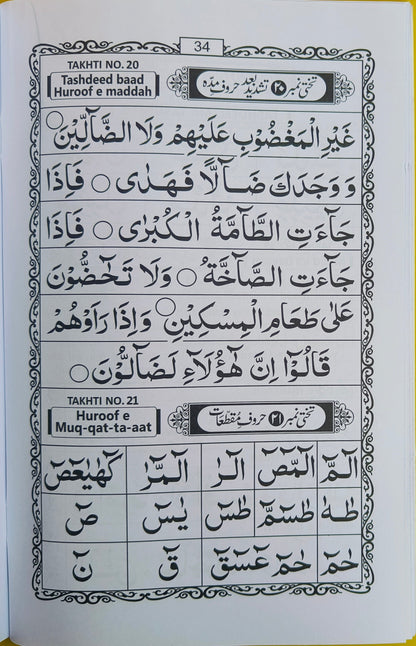 34
TAKHTI NO. 20
Tashdeed baad
Huroof e maddah
تختی نمبر ۲۰ تشدید بعد حروف مدہ
غَيْرِ الْمَغْضُوْبِ عَلَيْهِمْ وَلَا الضَّآلِّيْنَ ○
وَ وَجَدَكَ ضَآلًّا فَهَدٰى ○ فَاِذَا
جَآءَتِ الطَّآمَّةُ الْكُبْرٰى ○ فَاِذَا
جَآءَتِ الصَّآخَّةُ ○ وَلَا تَحٰٓضُّوْنَ
عَلٰى طَعَامِ الْمِسْكِيْنِ ○ وَاِذَا رَاَوْهُمْ
قَالُوْٓا اِنَّ هٰٓؤُلَآءِ لَضَآلُّوْنَ ○
TAKHTI NO. 21
Huroof e
Muq-qat-ta-aat
تختی نمبر ۲۱ حروف مقطعات
الٓمّٓ الٓمّٓصٓ الٓرٰ الٓمّٓرٰ كٓهٰيٰعٓصٓ
طٰهٰ طٰسٓمّٓ طٰسٓ يٰسٓ صٓ
حٰمٓ حٰمٓ عٓسٓقٓ قٓ نٓ